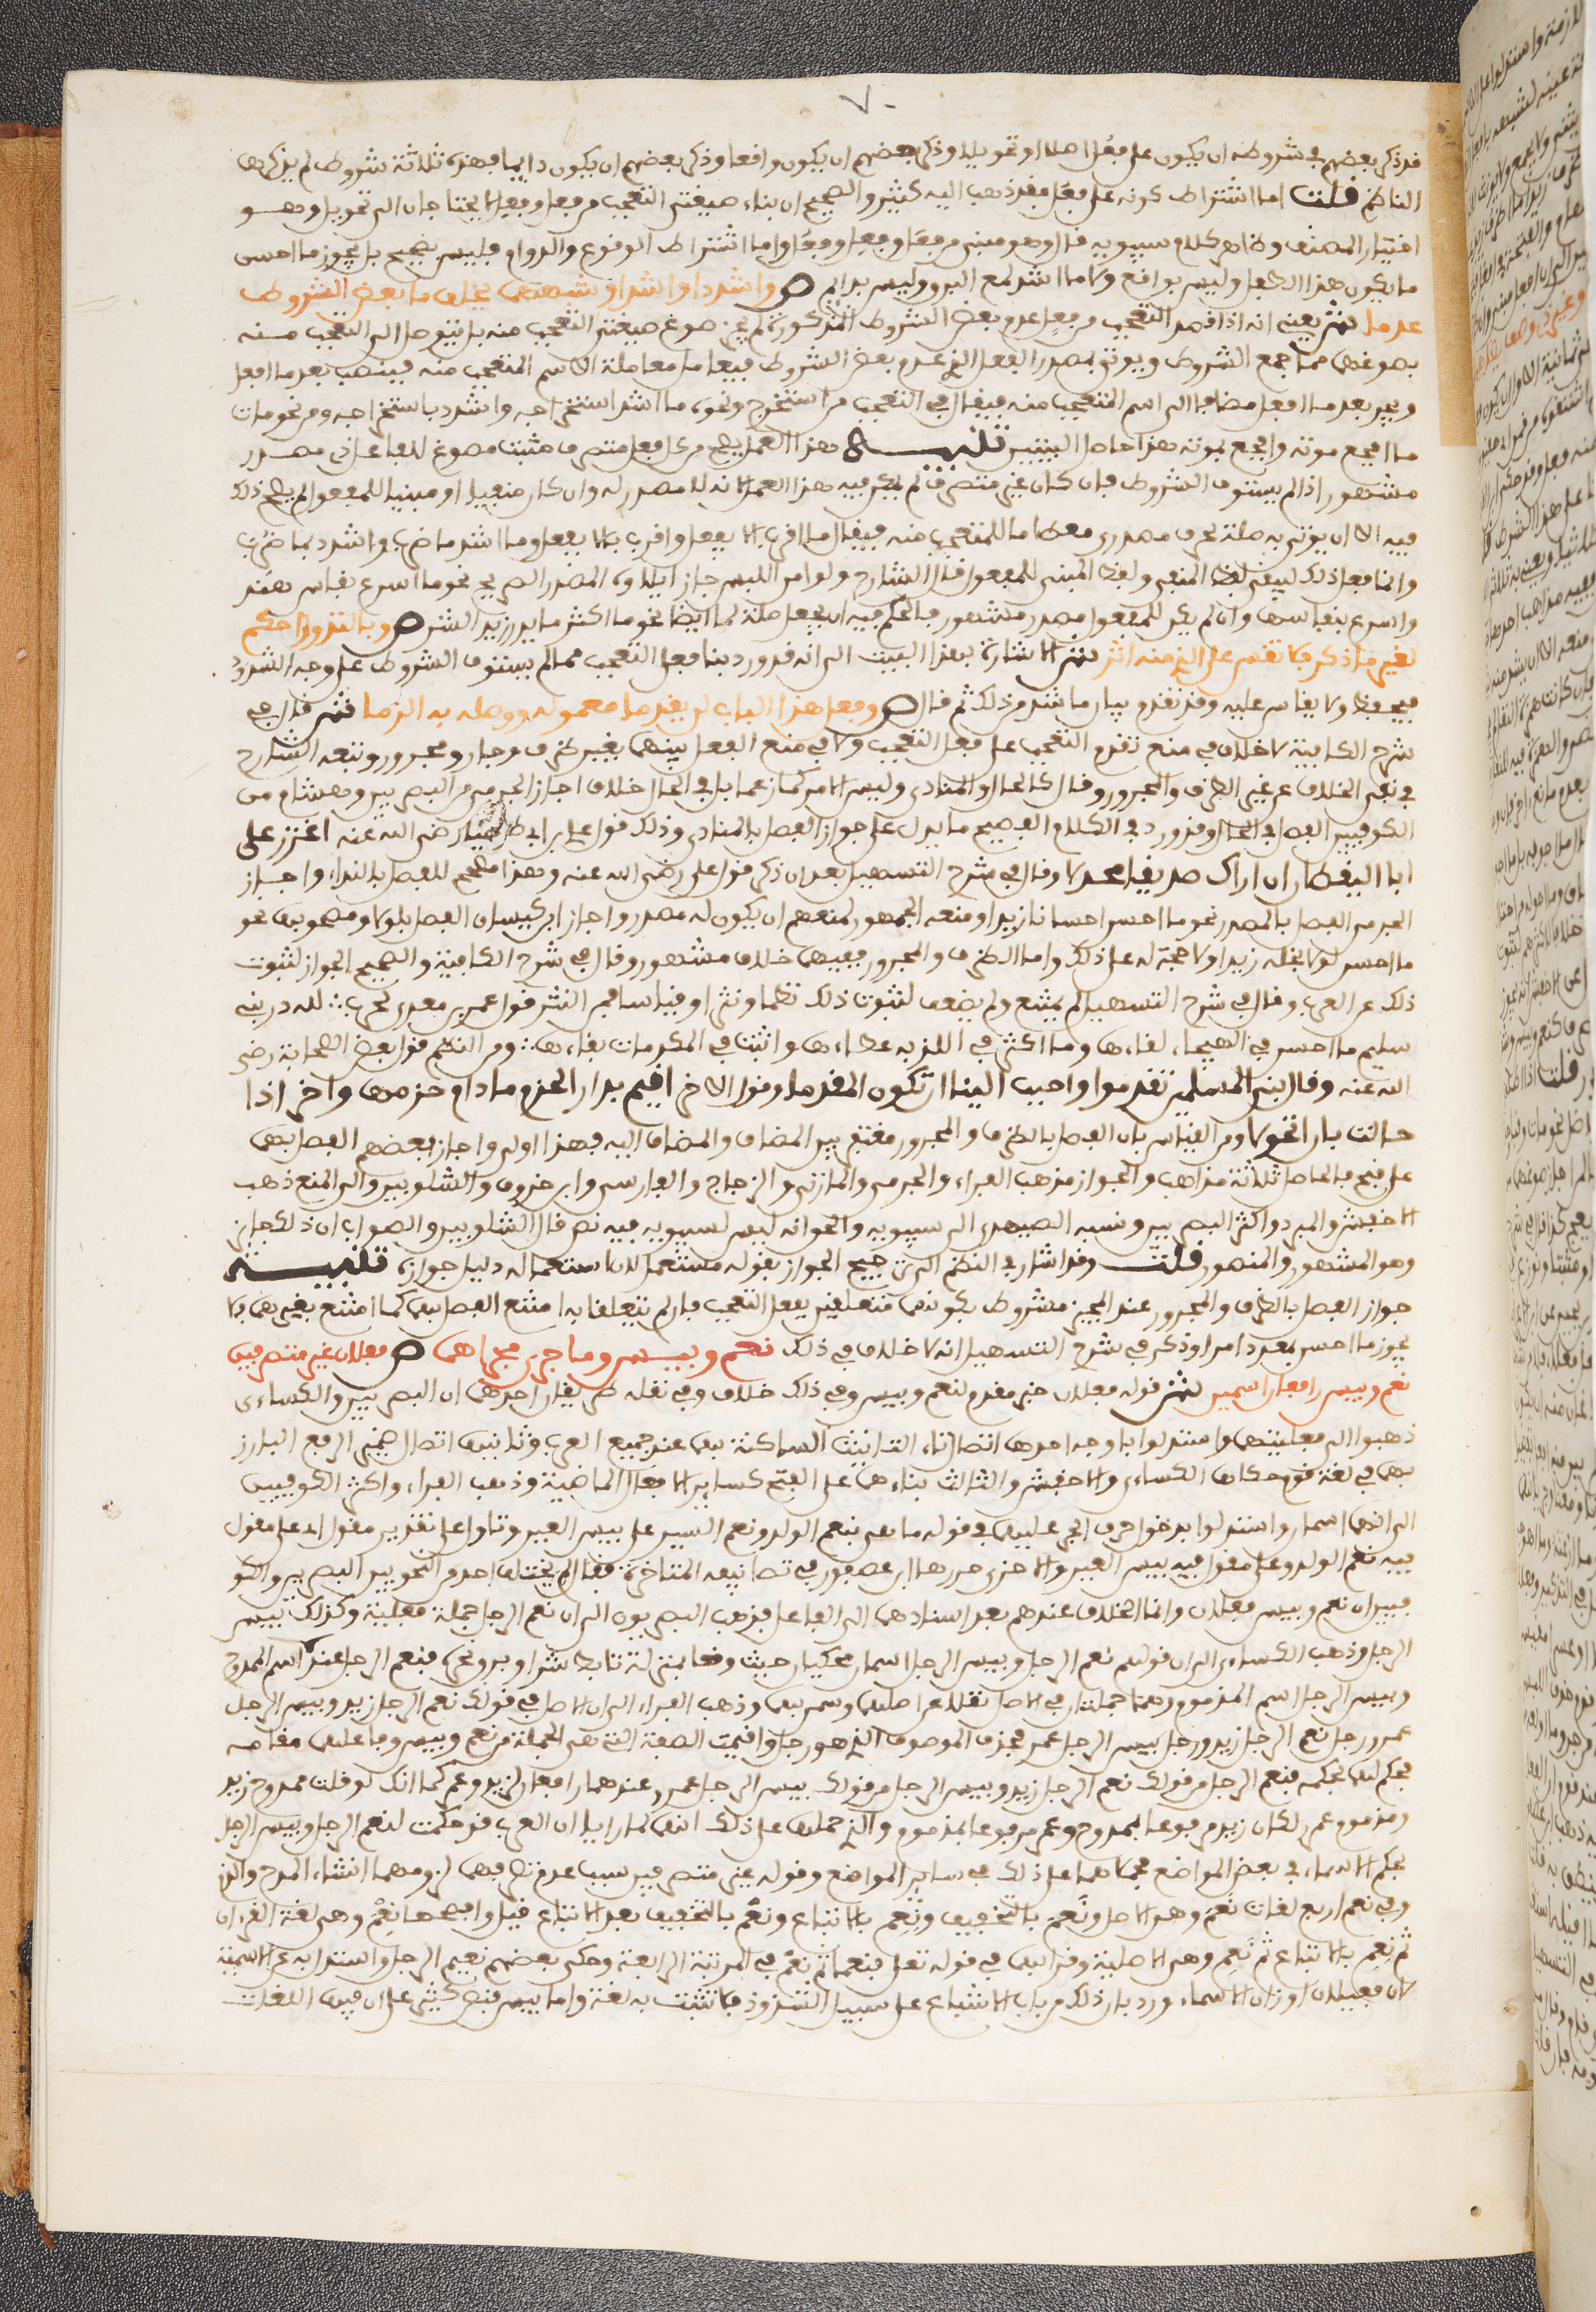 ٧٠
قد ذكر بعضهم في شروطه ان يكون على فعل اصلا او تحويلا وذكر بعضهم ان يكون واقعا وذكر بعضهم ان يكون دايما فهذه ثلاثة شروط لم يذكرها
الناظم قلت اما اشتراط كونه على فعل فقد ذهب اليه كثير والصحيح ان بناء صيغتي التعجب من فعل وفعل لا يحتاجان الى تحويل وهو
اختيار المصنف وظاهر كلام سيبويه قال وهو مبني من فعل وفعل وفعل واما اشتراط الوقوع والدوام فليس بصحيح بل يجوز ما احسن
ما يكون هذا الطفل وليس بواقع وما اشد لمع البرق وليس بدايم ص واشدد او اشد او شبههما يخلف ما بعض الشروط
عدما ش يعني انه اذا قصد التعجب من فعل عدم بعض الشروط المذكورة لم يجز صوغ صيغتي التعجب منه بل يتوصل الى التعجب منه
بصوغهما مما جمع الشروط ويوتى بمصدر الفعل الذي عدم بعض الشروط فيعامل معاملة الاسم المتعجب منه فينصب بعد ما افعل
ويجر بعد افعل مضافا الى اسم المتعجب منه فيقال في التعجب من استخرج ونحوه ما اشد استخراجه واشدد باستخراجه ومن نحو مات
ما افجع موته وافجع بموته هذا حاصل البيتين تنبيه هذا العمل يصح من كل فعل متصرف مثبت مصوغ للفاعل ذي مصدر
مشهور اذا لم يستوف الشروط فان كان غير متصرف لم يكن فيه هذا العمل لانه لا مصدر له وان كان منفيا او مبنيا للمفعول لم يصح ذلك
فيه الا ان يوتى به صلة لحرف مصدري معطى ما للمتعجب منه فيقال ما اقرب الا يفعل واقرب بالا يفعل وما اشد ما ضرب واشدد بما ضرب
وانما فعل ذلك ليبقى لفظ المنفي ولفظ المبني للمفعول قال الشارح ولو امن اللبس جاز ايلاوه المصدر الصريح نحو ما اسرع نفاس هند
واسرع بنفاسها وان لم يكن للمفعول مصدر مشهور فالحكم فيه ان يجعل صلة لما ايضا نحو ما اكثر ما يذر زيد الشر ص وبالندور احكم
لغير ما ذكر ولا تقس على الذي منه اثر ش الاشارة بهذا البيت الى انه قد ورد بنا فعل التعجب مما لم يستوف الشروط على وجه الشذوذ
فيحفظ ولا يقاس عليه وقد تقدم بيان ما شذ من ذلك ثم قال ص وفعل هذا الباب لن يقدما معموله ووصله به الزما ش قال في
شرح الكافية لا خلاف في منع تقدم المتعجب على فعل التعجب ولا في منع الفصل بينهما بغير ظرف وجار ومجرور وتبعه الشارح
في نفي الخلاف عن غير الظرف والمجرور وقال كالحال والمنادى وليس الامر كما زعما بل في الحال خلاف اجاز الجرمي من البصريين وهشام من
الكوفيين الفصل بالحال وقد ورد في الكلام الفصيح ما يدل على جواز الفصل بالمنادى وذلك قول علي بن ابي طالب رضي الله عنه اعزز علي
ابا اليقظان ان اراك صريعا مجدلا وقال في شرح التسهيل بعد ان ذكر قول علي رضي الله عنه وهذا مصحح للفصل بالنداء واجاز
الجرمي الفصل بالمصدر نحو ما احسن احسانا زيدا ومنعه الجمهور لمنعهم ان يكون له مصدر واجاز ابن كيسان الفصل بلولا ومصحوبها نحو
ما احسن لولا بخله زيدا ولا حجة له على ذلك واما الظرف والمجرور ففيهما خلاف مشهور وقال في شرح الكافية والصحيح الجواز لثبوت
ذلك عن العرب وقال في شرح التسهيل لم يمتنع ولم يضعف لثبوت ذلك نظما ونثرا وقياسا فمن النثر قول عمرو بن معدي كرب لله در بني
سليم ما احسن في الهيجاء لقاءها وما اكثر في اللزبه عطاءها واثبت في المكرمات بقاءها ومن النظم قول بعض الصحابة رضي
الله عنه وقال نبي المسلمين تقدموا واحبب الينا ان تكون المقدما وقول الاخر اقيم بدار الحزم ما دام حزمها واخر اذا
حالت بان اتحولا ومن القياس بان الفصل بالظرف والمجرور مغتفر بين المضاف والمضاف اليه فهذا اولى واجاز بعضهم الفصل بهما
على قبح فالحاصل ثلاثة مذاهب والجواز مذهب الفراء والجرمي والمازني والزجاج والفارسي وابن خروف والشلوبين والى المنع ذهب
الاخفش والمبرد واكثر البصريين ونسبه الصيمري الى سيبويه والحق انه ليس لسيبويه فيه نص قال الشلوبين والصواب ان ذلك جايز
وهو المشهور والمنصور قلت وقد اشار في النظم الى ترجيح الجواز بقوله مستعمل لان استعماله دليل جوازه تنبيه
جواز الفصل بالظرف والمجرور عند المجيز مشروط بكونهما متعلقين بفعل التعجب فان لم يتعلقا به امتنع الفصل بهما كما امتنع بغيرهما فلا
يجوز ما احسن بمعروف امرا وذكر في شرح التسهيل انه لا خلاف في ذلك نعم وبيس وما جرى مجراهما ص فعلان غير متصرفين
نعم وبيس رافعان اسمين ش قوله فعلان خبر مقدم لنعم وبيس وفي ذلك خلاف وفي نقله طريقان احدهما ان البصريين والكساءي
ذهبوا الى فعليتهما واستدلوا باوجه احدها اتصال تاء التانيث الساكنة بهما عند جميع العرب وثانيها اتصال ضمير الرفع البارز
بهما في لغة قوم حكاها الكساءي والاخفش والثالث بناءهما على الفتح كساير الافعال الماضية وذهب الفراء واكثر الكوفيين
الى انهما اسمان واستدلوا بدخول حرف الجر عليهما في قوله ما هي بنعم الولد ونعم السير على بيس العير وتاول على تقدير مقول اي على مقول
فيه نعم الولد وعلى مقول فيه بيس العير والاخرى حررها ابن عصفور في تصانيفه المتاخرة فقال لم يختلف احد من النحويين البصريين والكو
فيين ان نعم وبيس فعلان وانما الخلاف عندهم بعد اسنادهما الى الفاعل فذهب البصريون الى ان نعم الرجل جملة فعلية وكذلك بيس
الرجل وذهب الكساءي الى ان قولهم نعم الرجل وبيس الرجل اسمان محكيان حيث وقعا بمنزلة تابط شرا وبرق نحره فنعم الرجل عنده اسم الممدوح
وبيس الرجل اسم المذموم وهما جملتان في الاصل نقلا عن اصلهما وسمي بهما وذهب الفراء الى ان الاصل في قولك نعم الرجل زيد وبيس الرجل
عمرو رجل نعم الرجل زيد ورجل بيس الرجل عمرو فحذف الموصوف الذي هو رجل واقيمت الصفة التي هي الجملة من نعم وبيس وفاعلهما مقامه
فحكم لها بحكمه فنعم الرجل من قولك نعم الرجل زيد وبيس الرجل من قولك بيس الرجل عمرو عندهما رافعان لزيد وعمرو كما انك لو قلت ممدوح زيد
ومذموم عمرو لكان زيد مرفوعا بممدوح وعمرو مرفوعا بمذموم والذي حملهما على ذلك انهما لما رايا ان العرب قد حكمت لنعم الرجل وبيس الرجل
بحكم الاسماء في بعض المواضع حملاهما على ذلك في ساير المواضع وقوله غير متصرفين سبب عدم تصرفهما لزومهما انشاء المدح والذم
وفي نعم اربع لغات نعم وهو الاصل ونعم بالتخفيف ونعم بالاتباع ونعم بالتخفيف بعد الاتباع قيل وافصحها نعم وهي لغة القرءان
ثم نعم بالاتباع ثم نعم وهي الاصلية وقرا بهما في قوله تعلى فنعما ثم نعم في المرتبة الرابعة وحكى بعضهم نعيم الرجل واستدل به على الاسمية
لان فعيلا من اوزان الاسماء ورد بان ذلك من باب الاشباع على سبيل الشذوذ فلا تثبت به لغة واما بيس فنص كثير على ان فيها اللغات